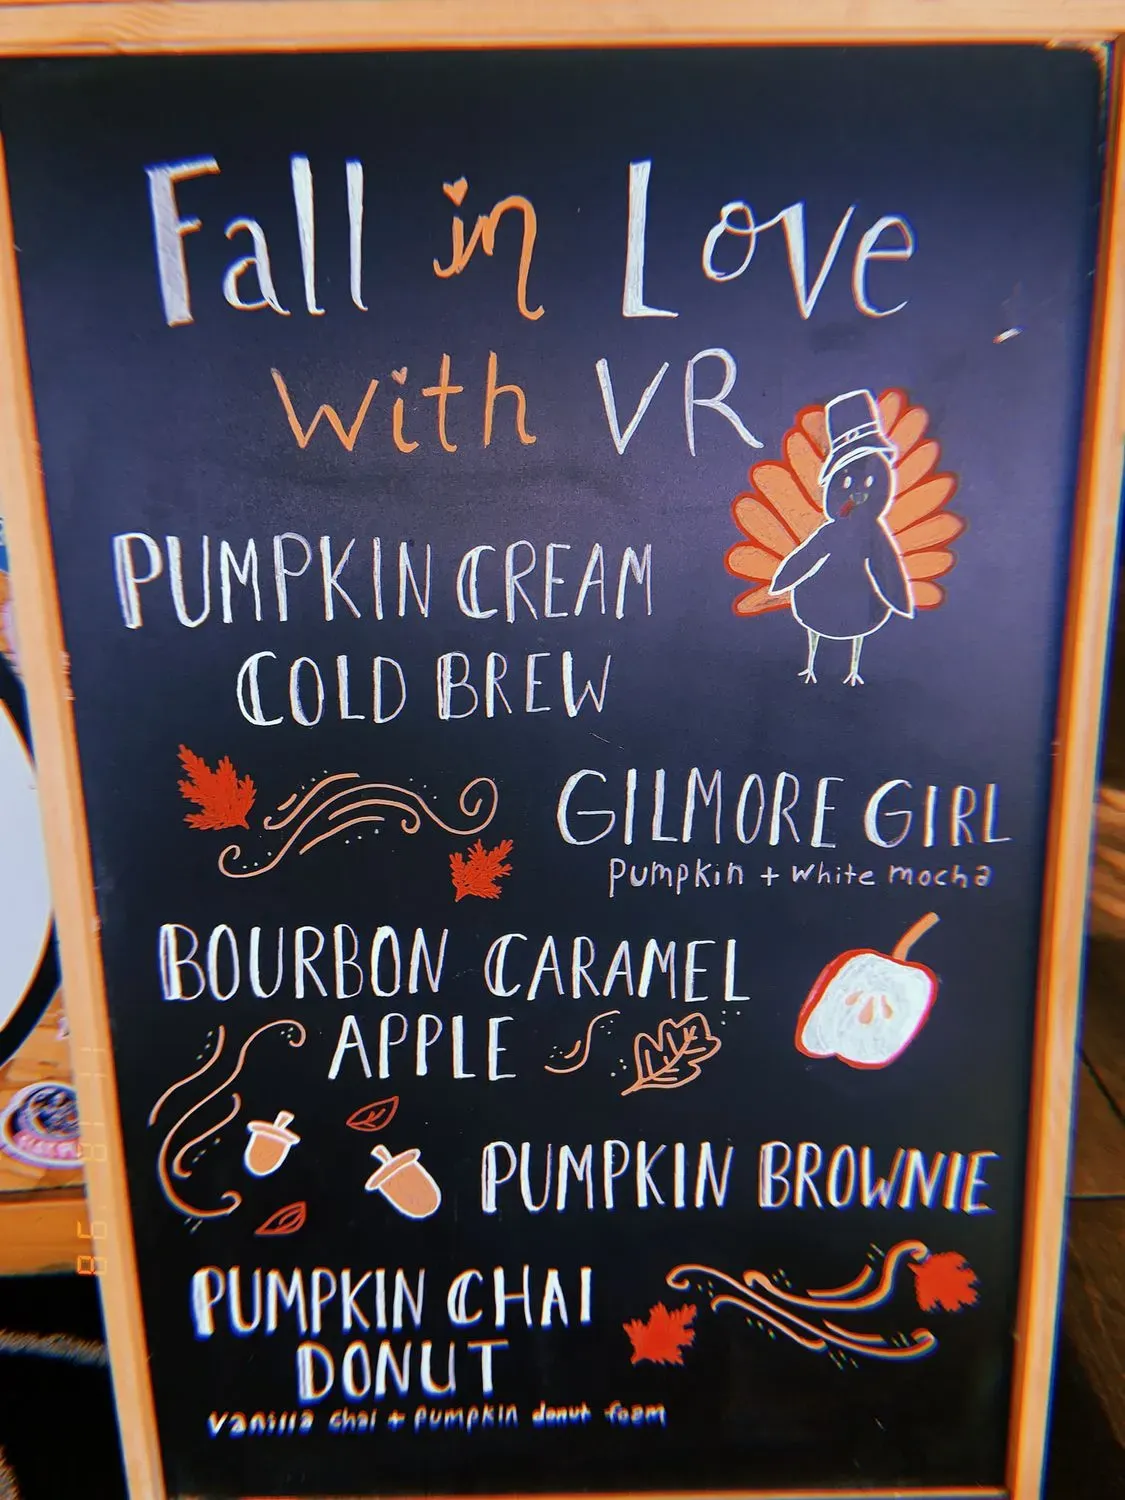 Fall in Love
with VR
PUMPKIN CREAM
COLD BREW
GILMORE GIRL
Pumpkin + White mocha
BOURBON CARAMEL
APPLE
PUMPKIN BROWNIE
PUMPKIN CHAI
DONUT
Vanilla Chai + Pumpkin donut foam